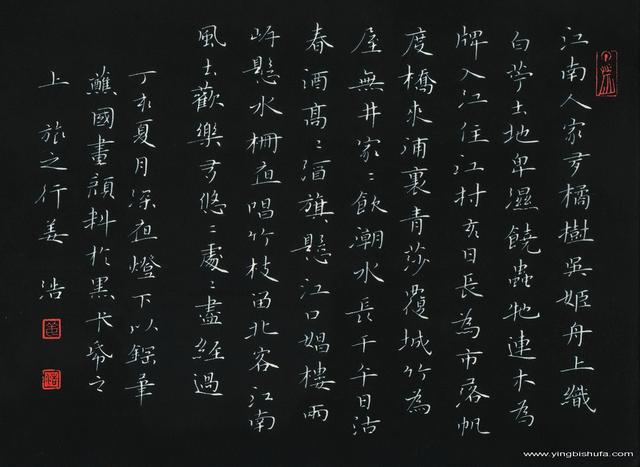 江南人家多橘樹吳姬舟上織
白苧土地卑濕饒蟲虵連木為
牌入江住江村亥日長為市落帆
度橋來浦裏青莎覆城竹為
屋無井家〻飲潮水長干午日沽
春酒高〻酒旗懸江口娼樓兩
岸懸水柵夜唱竹枝留北客江南
風土歡樂多悠〻處〻盡經過
丁亥夏月深夜燈下以鋼筆
蘸國畫顏料於黑卡紙之
上 旅之行姜浩
www.yingbishufa.com